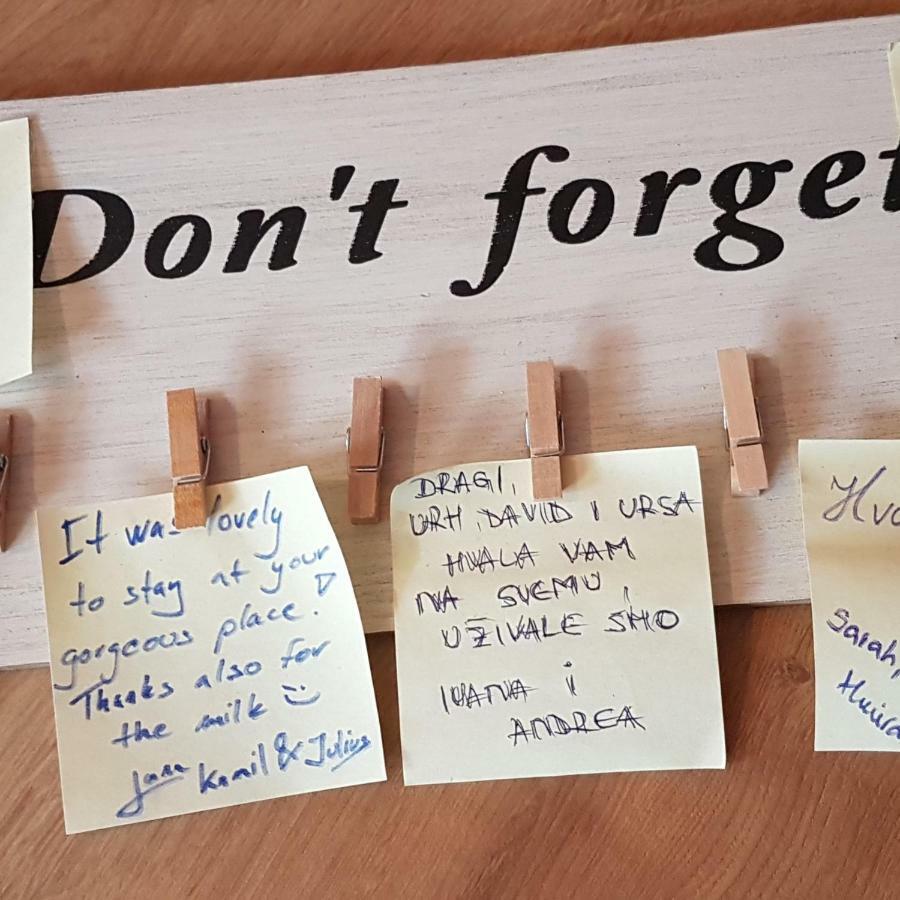 Don't forget
It was lovely
to stay at your
gorgeous place!
Thanks also for
the milk :)
Kamil & Julius
DRAGI,
URH, DAVID I URSA
HVALA VAM
NA SVEMU,
UŽIVALE SMO
IVANA i
ANDREA
Sarah,